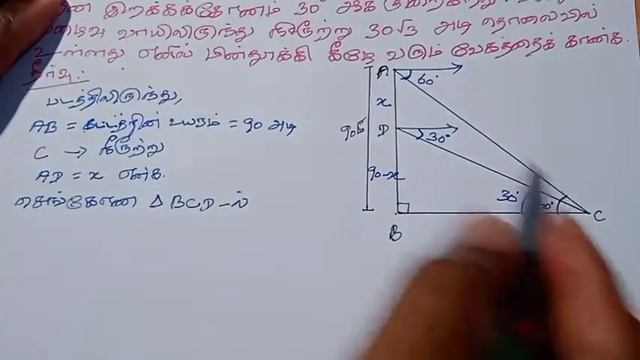 இறக்கக்கோணம் 30° ஆக
வாயிலிருந்து நீரூற்று 30√3 அடி தொலைவில்
உள்ளது எனில் மின்தூக்கி கீழே வரும் வேகத்தைக் காண்க.
தீர்வு:-
படத்திலிருந்து,
AB = உயரம் = 90 அடி
C → நீரூற்று
AD = x என்க.
செங்கோண Δ BCD-ல்
A
60°
x
D
30°
90
90-x
30°
B
C